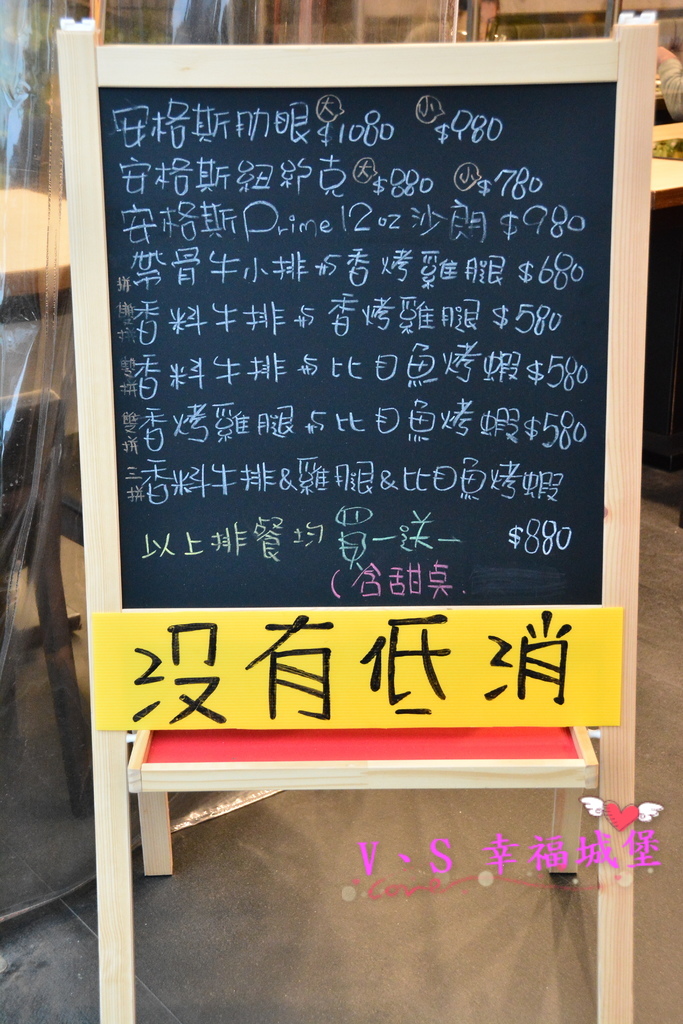 安格斯肋眼 大 $1080 小 $980
安格斯紐約克 大 $880 小 $780
安格斯Prime 12oz 沙朗 $980
雙拼 帶骨牛小排与香烤雞腿 $680
雙拼 香料牛排与香烤雞腿 $580
雙拼 香料牛排与比目魚烤蝦 $580
雙拼 香烤雞腿与比目魚烤蝦 $580
三拼 香料牛排&雞腿&比目魚烤蝦
$880
以上排餐均買一送一
(含甜桌
沒有低消
V、S 幸福城堡